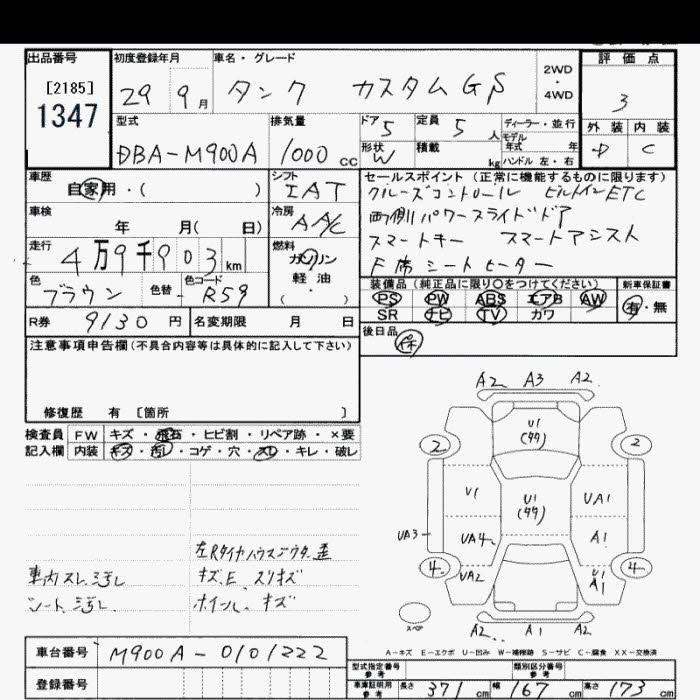 出品番号 初度登録年月 車名・グレード 2WD・4WD 評価点
[2185]
1347
29 9月 タンク カスタムGS 3
型式 排気量 ドア 5 定員 5人 ディーラー・並行 外装 内装
DBA-M900A 1000cc 形状 W 積載 kg モデル年式 年 ハンドル 左・右 D C
車歴 自家用・( ) シフト IAT
セールスポイント (正常に機能するものに限ります)
クルーズコントロール ビルトインETC
両側パワースライドドア
スマートキー スマートアシスト
F席シートヒーター
車検 年 月( 日) 冷房 AA/C
走行 4万9千903km 燃料 ガソリン 軽油 ( ・ )
色 ブラウン 色替 色コード R59
装備品 (純正品に限り○をつけてください) 新車保証書
PS PW ABS エアB AW 有・無
SR ナビ TV カワ
R券 9130円 名変期限 月 日
後日品 保
注意事項申告欄(不具合内容等は具体的に記入して下さい)
修復歴 有 [箇所 ]
検査員記入欄 FW キズ・飛石・ヒビ割・リペア跡・×要
内装 キズ・汚れ・コゲ・穴・スレ・キレ・破レ
A2 A3 A2
U1
(99)
2 2
U1 U1 UA1
(99)
UA3 UA4 A1
4 UA2 U1 A1 4
スペア A2 A1 A2
左Rタイヤハウスインナー歪
車内スレ、汚レ キズ、E、スリキズ
シート、汚レ ホイール、キズ
A-キズ E-エクボ U-凹み W-補修跡 S-サビ C-腐食 XX-交換済
車台番号 M900A-0101222
登録番号
型式指定番号 参考 類別区分番号 参考
車庫証明用 参考 長さ 371cm 幅 167cm 高さ 173cm